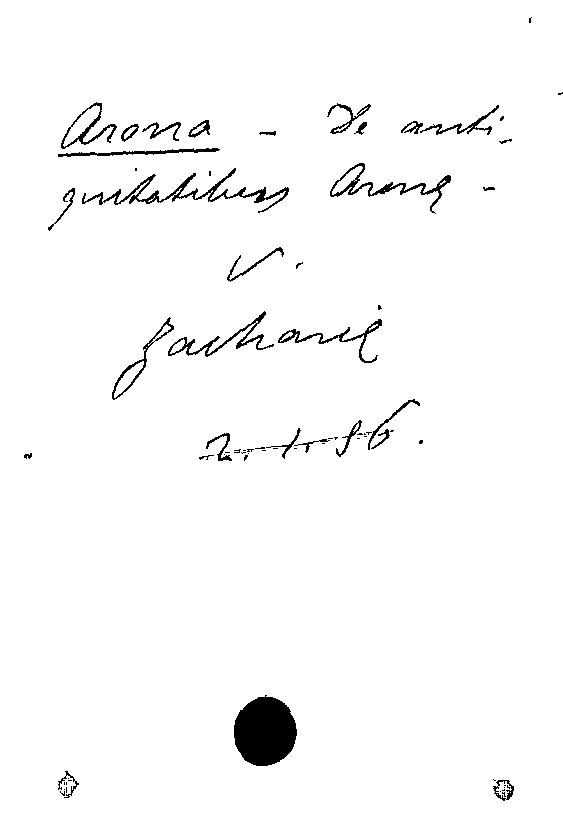 Arona - De anti-
quitatibus Aronę -
V.
Zacharię
2. 1. 96.